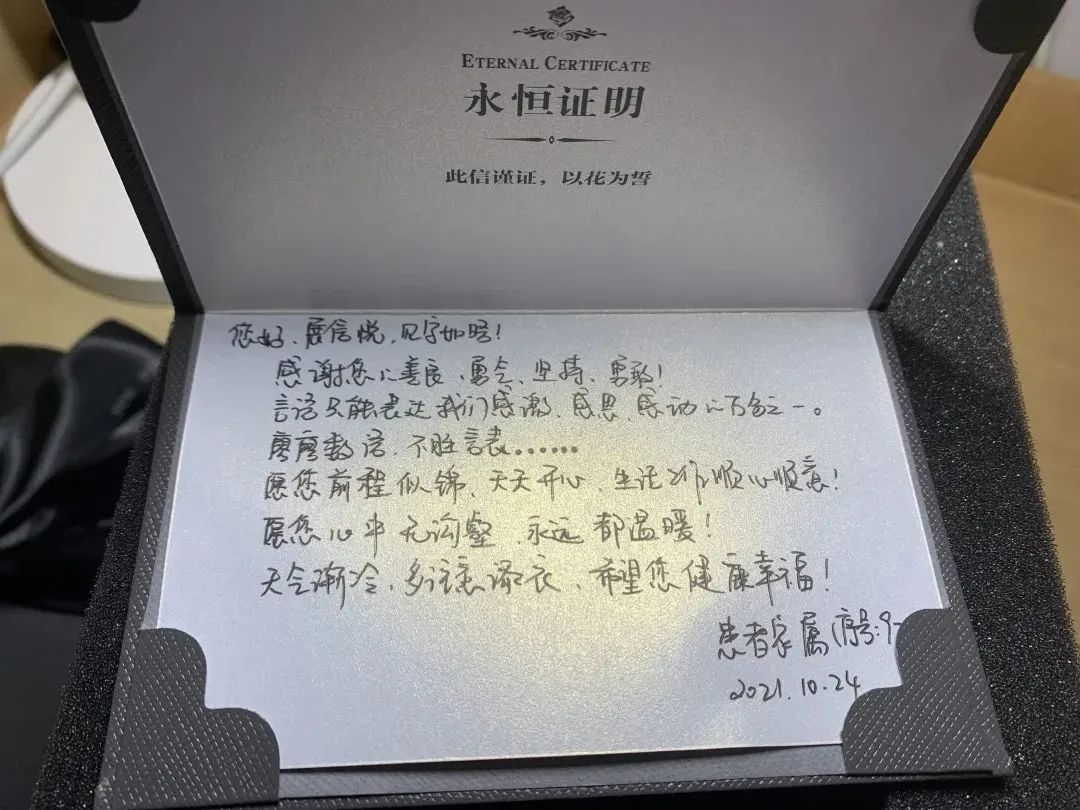 ETERNAL CERTIFICATE
永恒证明
此信谨证，以花为誓
您好、展信悦，见字如晤！
感谢您的善良、勇气、坚持、勇敢！
言语只能表达我们感激、感恩、感动的万分之一。
寥寥数语、不胜言表……
愿您前程似锦、天天开心、生活工作顺心顺意！
愿您心中无沟壑，永远都温暖！
天气渐冷，多注意添衣、希望您健康幸福！
患者家属（序号:9-
2021.10.24